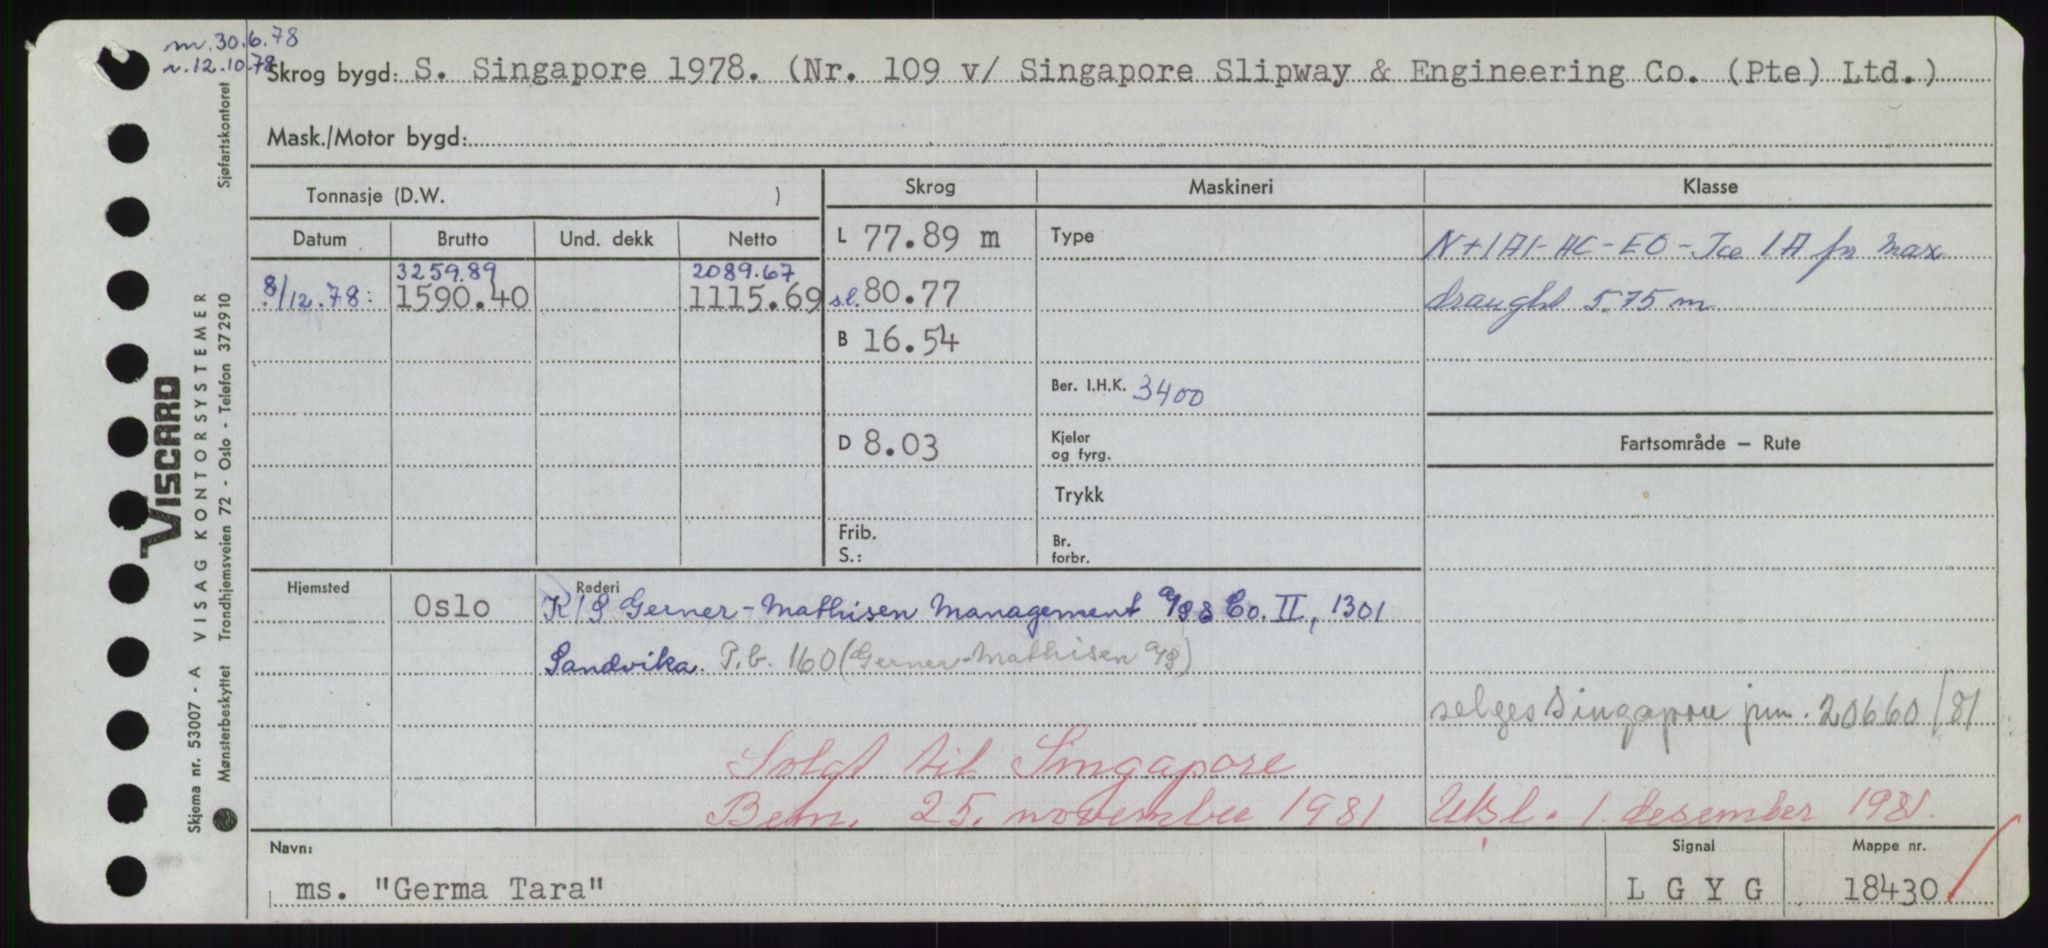 m. 30.6.78
r. 12.10.78
Skrog bygd: S. Singapore 1978. (Nr. 109 v/ Singapore Slipway & Engineering Co. (Pte) Ltd.)
Mask./Motor bygd:
Tonnasje (D.W. )
Skrog
Maskineri
Klasse
Datum
Brutto
Und. dekk
Netto
L 77.89 m
Type
N+1A1-HC-EO-Ice 1A for max
3259.89
2089.67
8/12.78:
1590.40
1115.69
s.l. 80.77
draught 5.75 m
B 16.54
Ber. I.H.K. 3400
D 8.03
Kjeler
og fyrg.
Fartsområde — Rute
Trykk
Frib.
S.:
Br.
forbr.
Hjemsted
Oslo
Rederi
K/S Gerner-Mathisen Management A/S & Co. II, 1301
Sandvika. P.b. 160 (Gerner-Mathisen A/S)
selges Singapore jnr. 20660/81
Solgt til Singapore
Bem. 25. november 1981
Utsl. 1. desember 1981.
Navn:
ms. "Germa Tara"
Signal
L G Y G
Mappe nr.
18430
Sjøfartskontoret
VISCARD
VISAG KONTORSYSTEMER
Trondhjemsveien 72 - Oslo - Telefon 372910
Skjema nr. 53007 - A
Mønsterbeskyttet